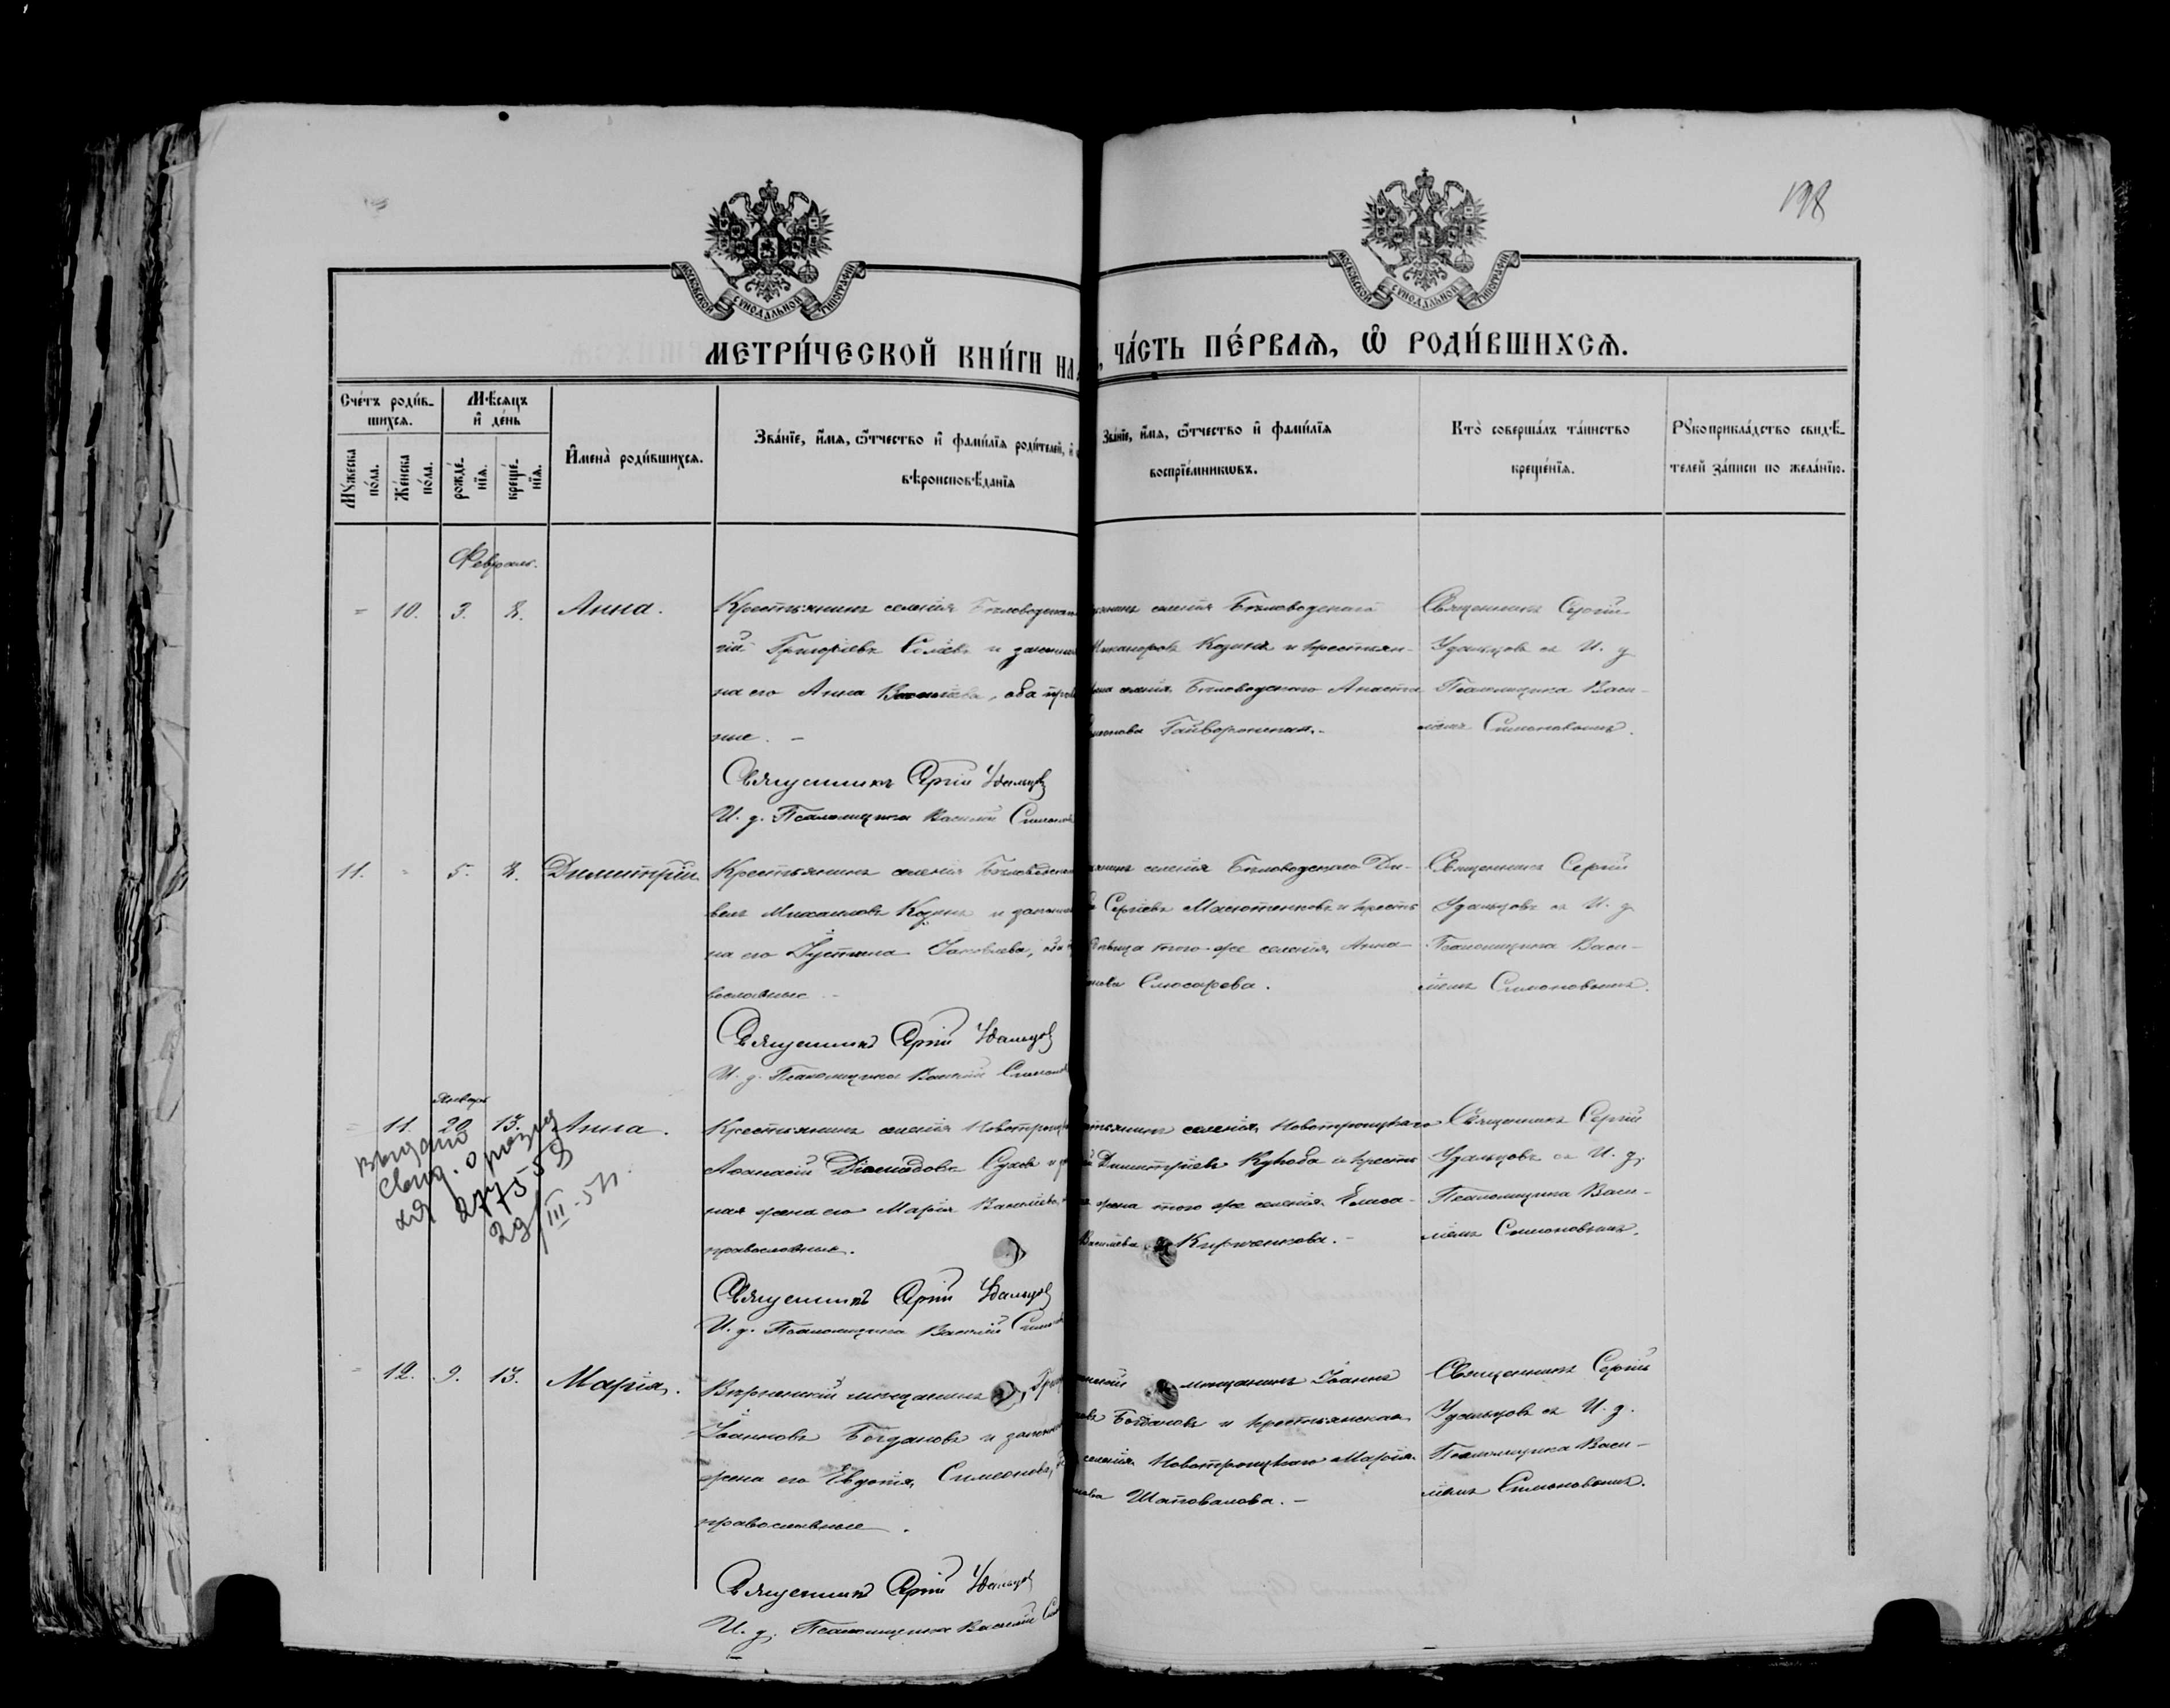 198
МОСКОВСКОЙ СѴНОДАЛЬНОЙ ТИПОГРАФІИ
МОСКОВСКОЙ СѴНОДАЛЬНОЙ ТИПОГРАФІИ
МЕТРИ́ЧЕСКОЙ КНИ́ГИ НА
ЧА́СТЬ ПЕ́РВАѦ, Ѽ РОДИ́ВШИХСѦ.
Сче́тъ роди́в-
шихсѧ.
Мꙋ́жеска по́ла.
Же́нска по́ла.
Мѣ́сѧцъ и҆ де́нь
рожде́-нїѧ.
креще́-нїѧ.
И҆мена̀ роди́вшихсѧ.
Зва́нїе, и҆́мѧ, ѻ҆́тчество и҆ фами́лїѧ роди́телей, и҆
вѣроисповѣ́данїѧ
Зва́нїе, и҆́мѧ, ѻ҆́тчество и҆ фами́лїѧ
воспрїе́мникѡвъ.
Кто̀ соверша́лъ та́инство
креще́нїѧ.
Рꙋкоприкла́дство свидѣ́-
телей за́писи по жела́нїю.
Февраль.
10. 3. 8. Анна.
Крестьянинъ селенія
гій Григоріевъ и законн
на его Анна Васильева, оба прав
ные. –
Священникъ Сергій Удальцовъ
И. д. Псаломщика Василій Симонов
селенія Бѣловодскаго
Никаноровъ Козинъ и крестьян-
селенія Бѣловодскаго Анаста
Гайворонская.-
Священникъ Сергій
Удальцовъ съ И. д.
Псаломщика Васи-
ліемъ Симоновымъ.
11. 5. 8. Димитрій
Крестьянинъ селенія Бѣловодскаго
велъ Михаиловъ Козинъ и законн
на его Іустина Іаковлева, оба п
вославные
Священникъ Сергій Удальцовъ
И. д. Псаломщика Василій Симонов
селенія Бѣловодскаго Ди-
Сергіевъ Масютенковъ и крестья
того-же селенія, Анна
Слюсарева.
Священникъ Сергій
Удальцовъ съ И. д.
Псаломщика Васи-
ліемъ Симоновымъ.
Январь
11. 20. 13. Анна.
выдано
свид. о рожд
27558
29/III-51
Крестьянинъ селенія Новотроицк
Аѳанасій Діомидовъ Суховъ и з
ная жена его Марія Васильева,
православные.
Священникъ Сергій Удальцовъ
И. д. Псаломщика Василій Симонов
селенія Новотроицкаго
Димитріевъ и кресть
жена того же селенія Елиса-
Васильева Кириченкова. –
Священникъ Сергій
Удальцовъ съ И. д.
Псаломщика Васи-
ліемъ Симоновымъ.
12. 9. 13. Марія.
Вѣрненскій мѣщанинъ
Іоанновъ Богдановъ и законн
жена его Евдокія Симеонова,
православные.
Священникъ Сергій Удальцовъ
И. д. Псаломщика Василій
мѣщанинъ Іоаннъ
Богдановъ и крестьянская
селенія Новотроицкаго Марія
Шаповалова. –
Священникъ Сергій
Удальцовъ съ И. д.
Псаломщика Васи-
ліемъ Симоновымъ.